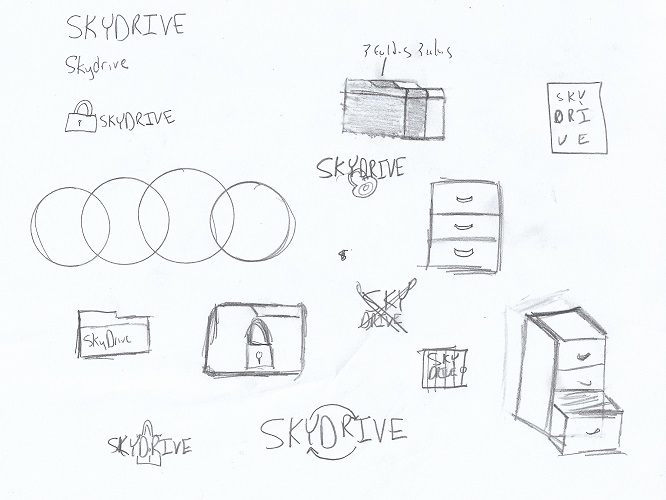 SKYDRIVE
Skydrive
SKYDRIVE
SKY
DRI
VE
SKYDRIVE
SKY
DRIVE
SkyDrive
SKY
SKYDRIVE
SKYDRIVE